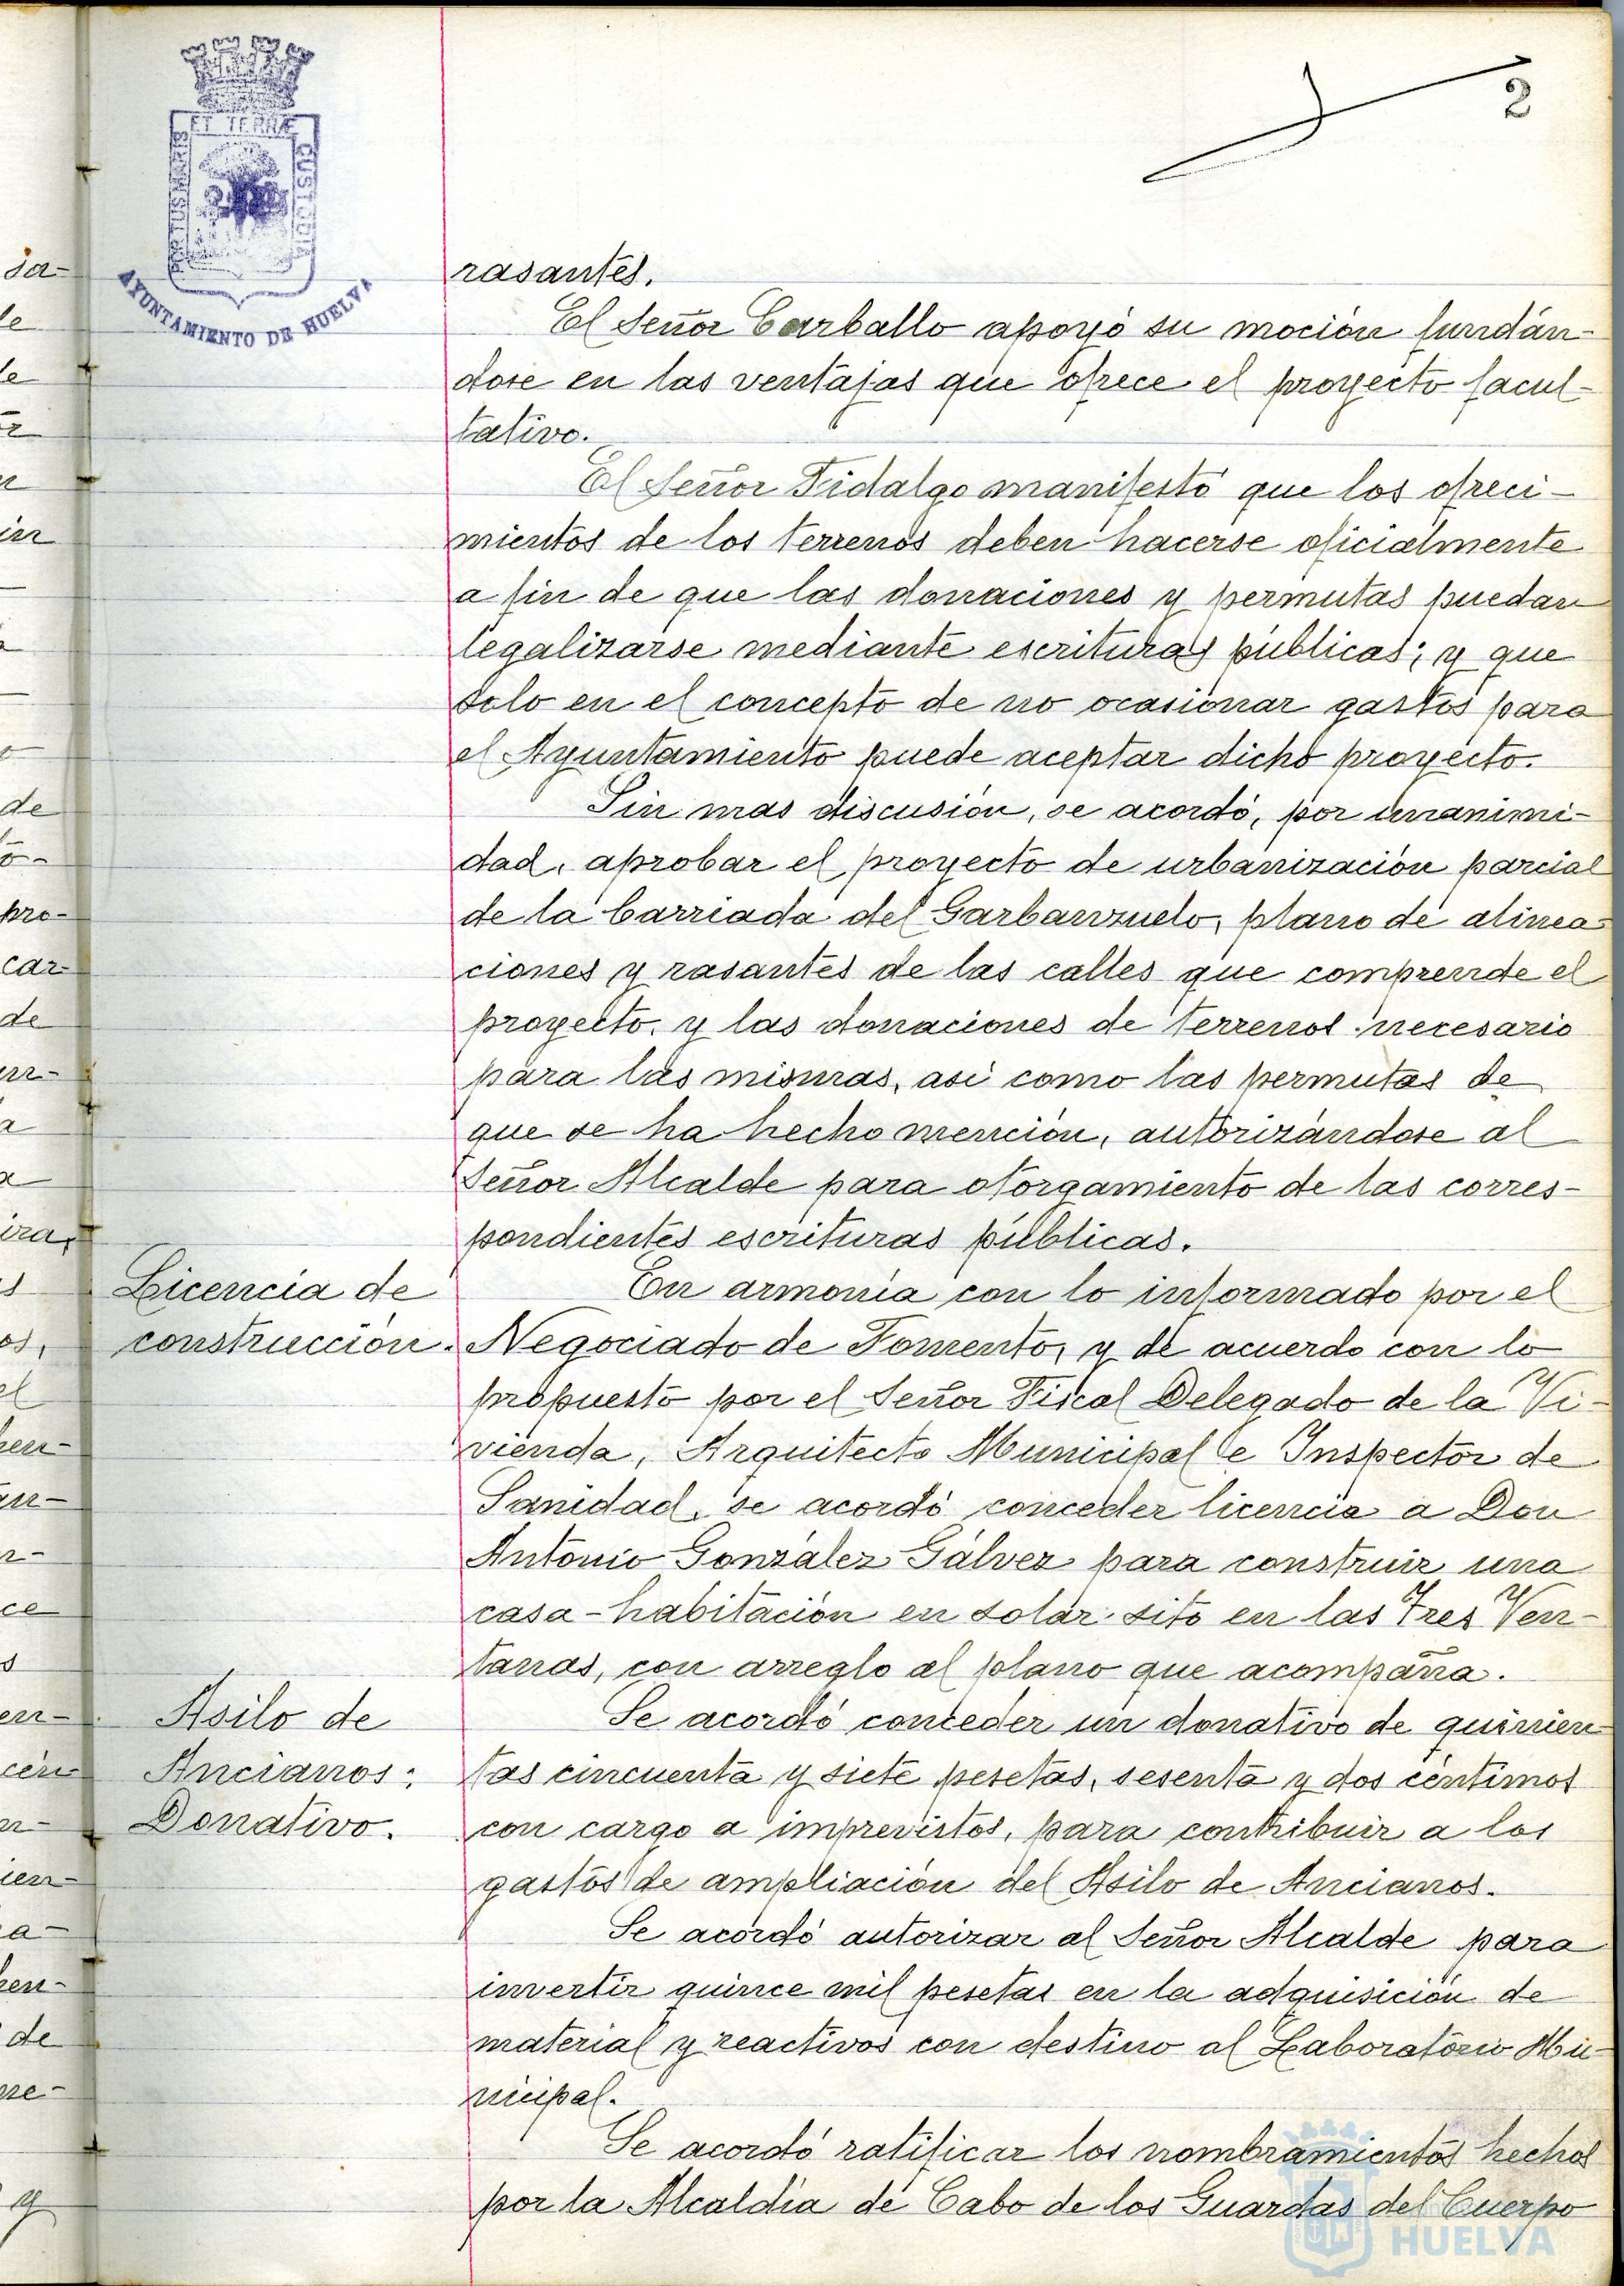 2
ET TERRÆ
PORTUS MARIS
CUSTODIA
AYUNTAMIENTO DE HUELVA
rasantes.
El Señor Carballo apoyó su moción fundán-
dose en las ventajas que ofrece el proyecto facul-
tativo.
El Señor Fidalgo manifestó que los ofreci-
mientos de los terrenos deben hacerse oficialmente
a fin de que las donaciones y permutas puedan
legalizarse mediante escrituras públicas; y que
solo en el concepto de no ocasionar gastos para
el Ayuntamiento puede aceptar dicho proyecto.
Sin mas discusión, se acordó, por unanimi-
dad, aprobar el proyecto de urbanización parcial
de la barriada del Garbanzuelo, plano de alinea-
ciones y rasantes de las calles que comprende el
proyecto, y las donaciones de terrenos necesario
para las mismas, asi como las permutas de
que se ha hecho mención, autorizándose al
Señor Alcalde para otorgamiento de las corres-
pondientes escrituras públicas.
Licencia de
construcción.
En armonía con lo informado por el
Negociado de Fomento, y de acuerdo con lo
propuesto por el Señor Fiscal Delegado de la Vi-
vienda, Arquitecto Municipal e Inspector de
Sanidad, se acordó conceder licencia a Don
Antonio González Gálvez para construir una
casa-habitación en solar sito en las Tres Ven-
tanas, con arreglo al plano que acompaña.
Asilo de
Ancianos:
Donativo.
Se acordó conceder un donativo de quinien-
tas cincuenta y siete pesetas, sesenta y dos céntimos
con cargo a imprevistos, para contribuir a los
gastos de ampliación del Asilo de Ancianos.
Se acordó autorizar al Señor Alcalde para
invertir quince mil pesetas en la adquisición de
material y reactivos con destino al Laboratorio Mu-
nicipal.
Se acordó ratificar los nombramientos hechos
por la Alcaldía de Cabo de los Guardas del Cuerpo
HUELVA